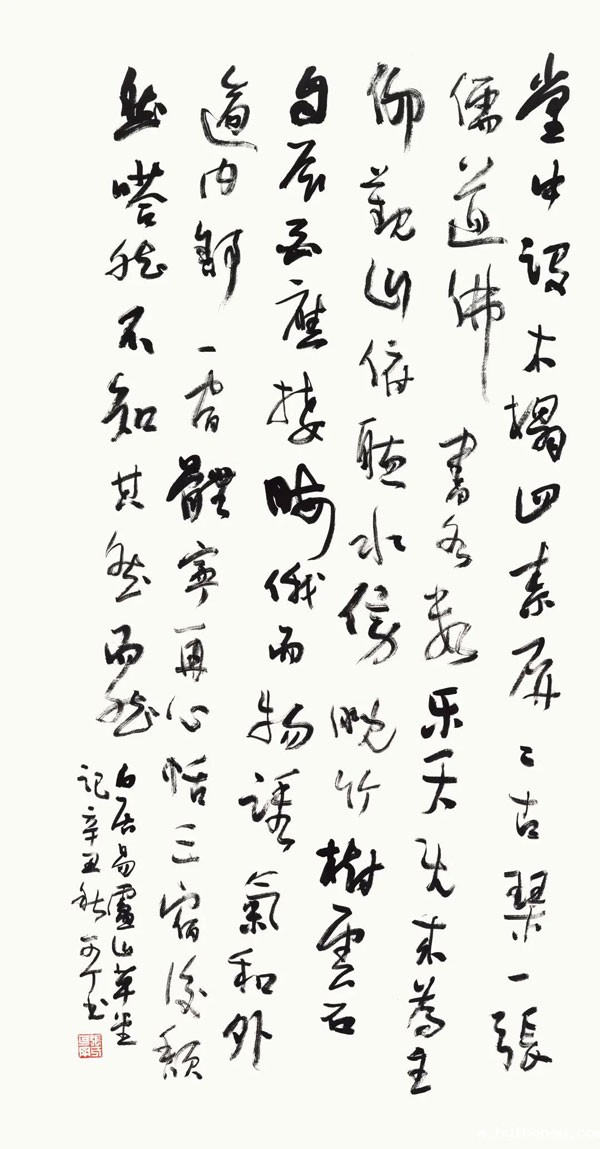 堂中設木榻四素屏二古琴一張
儒道佛書各数乐天既来為主
仰觀山俯聽水傍睨竹樹雲石
自辰酉應接暇俄而物誘氣和外
適内舒一宿體寧再心恬三宿後頹
然嗒然不知其然而然
白居易廬山草堂
記辛丑秋可丁书